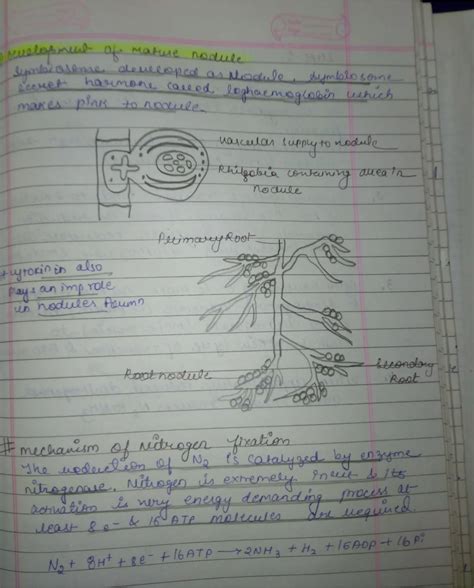 Development of mature nodule
Symbiosome developed as Nodule. Symbiosome
secret harmone called leghaemoglobin which
makes pink to nodule.
vascular supply to nodule
Rhizobia containing area in
nodule
Primary Root
* cytokinin also
Plays an imp role
in nodules
Root nodule
Secondary
Root
# mechanism of Nitrogen fixation
The reduction of N2 is catalyzed by enzyme
nitrogenase. Nitrogen is extremely inert & its
activation is very energy demanding process at
least 8e- & 16 ATP molecules are required
N2 + 8H+ + 8e- + 16ATP → 2NH3 + H2 + 16ADP + 16Pi